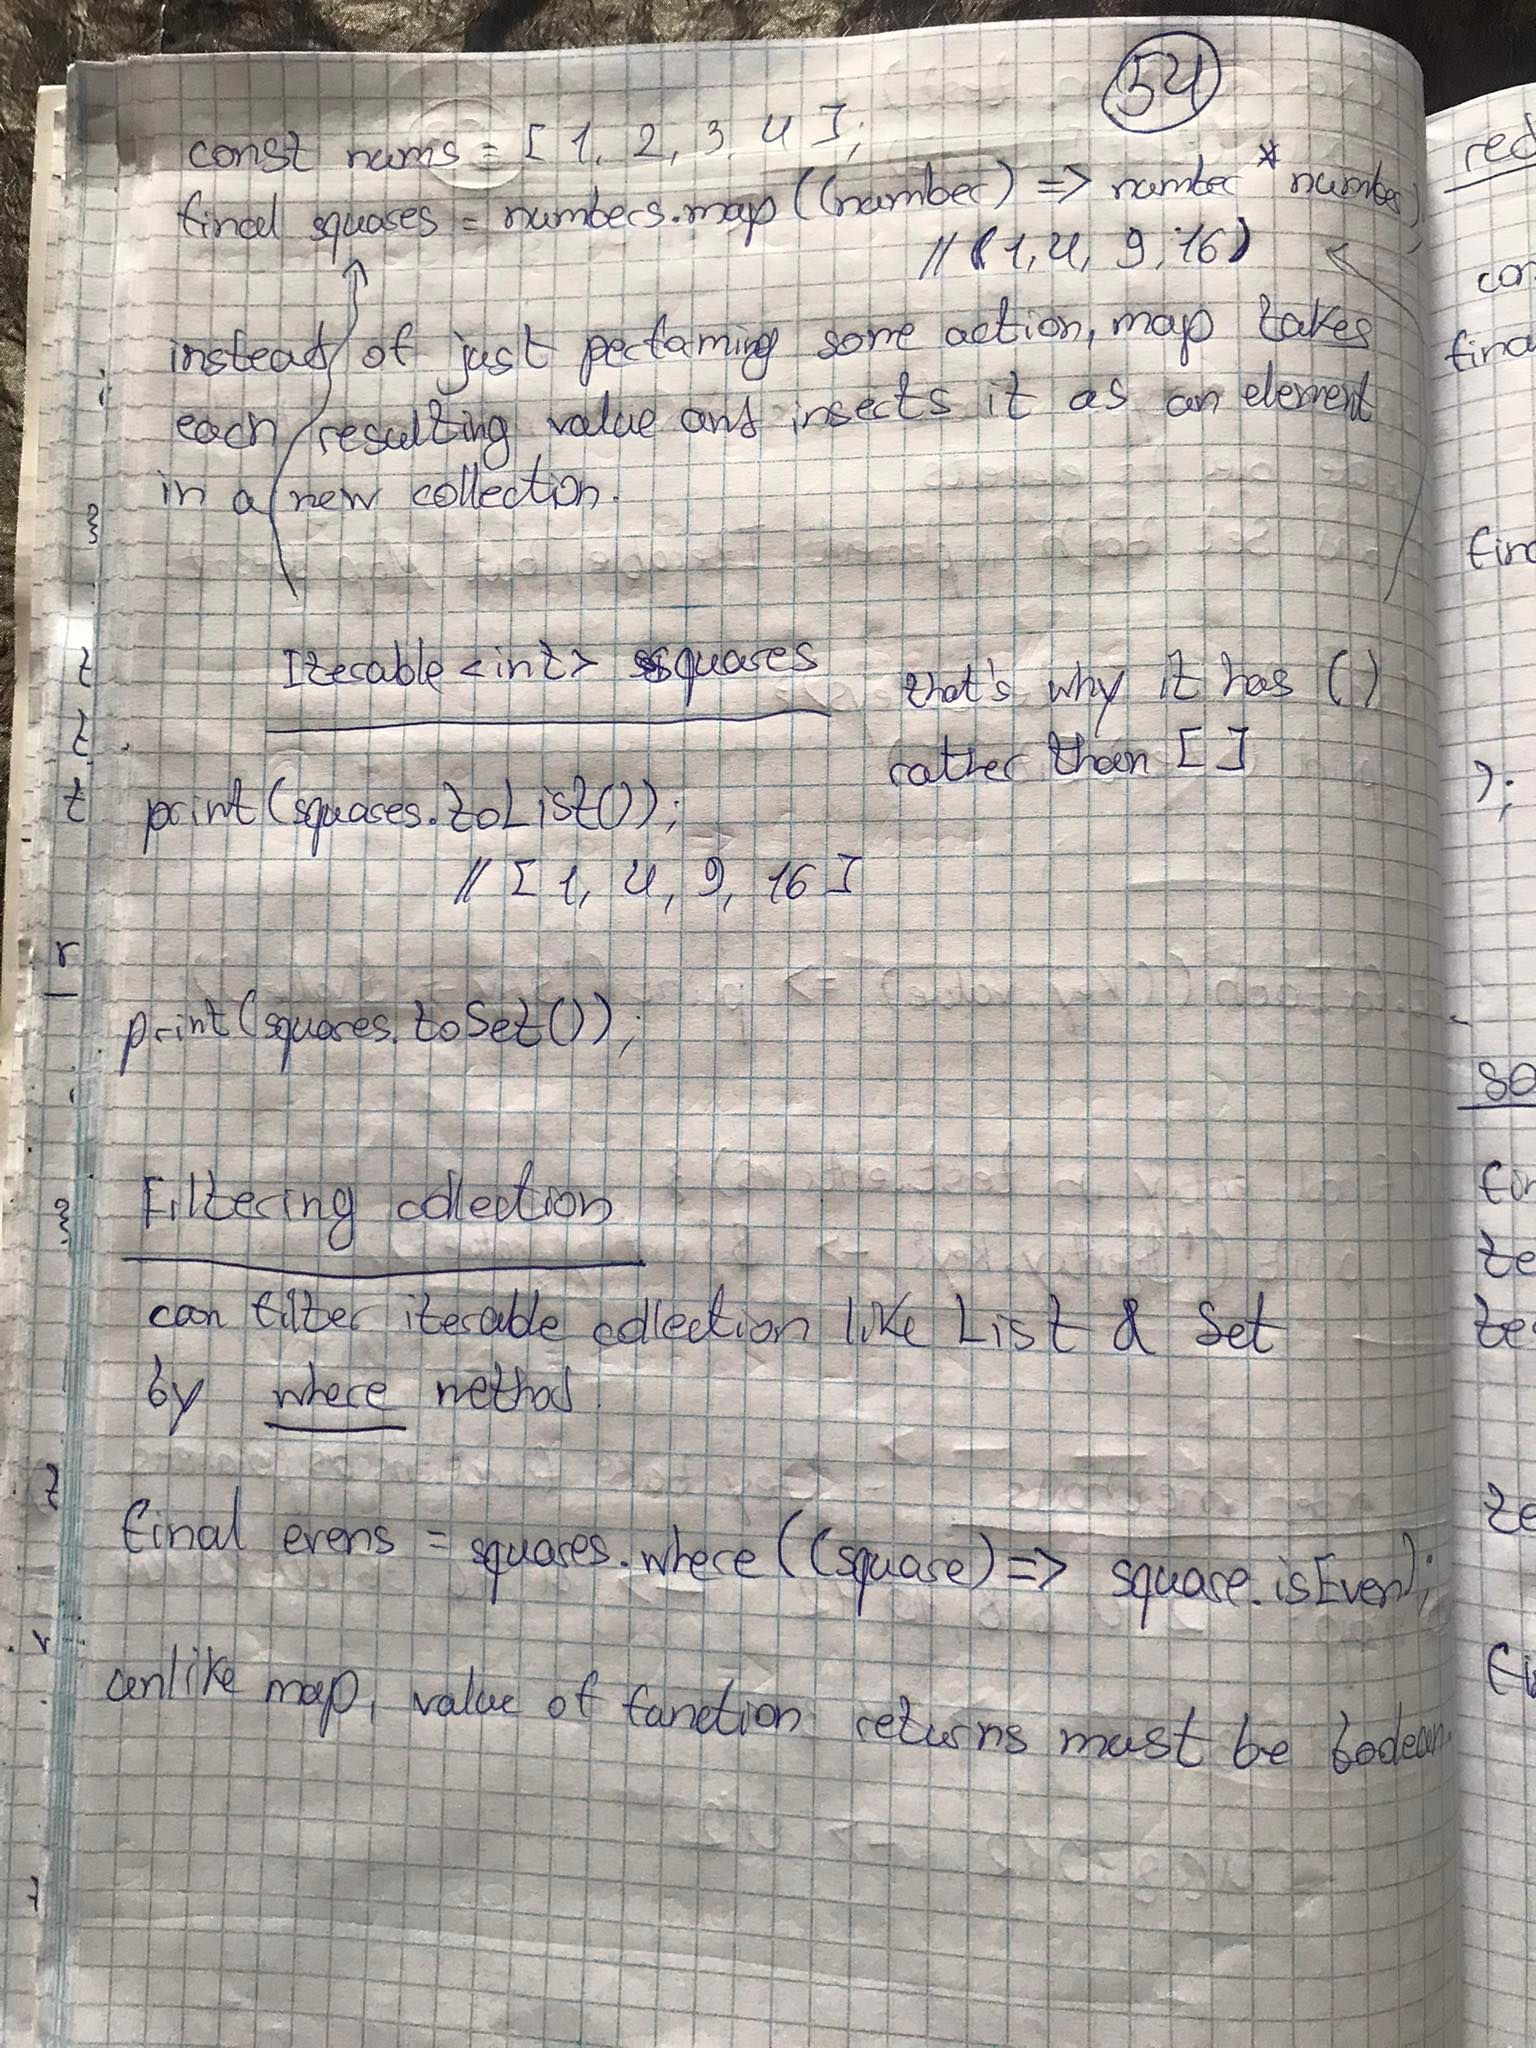 54
const nums = [ 1, 2, 3, 4 ];
final squares = numbers.map((number) => number * number)
// (1, 4, 9, 16)
instead of just performing some action, map takes
each resulting value and inserts it as an element
in a new collection.
Iterable <int> squares
that's why it has ( )
rather than [ ]
print(squares.toList());
// [ 1, 4, 9, 16 ]
print(squares.toSet());
Filtering collection
can filter iterable collection like List & Set
by where method.
final evens = squares.where((square) => square.isEven);
unlike map, value of function returns must be boolean.
red
con
fina
);
so